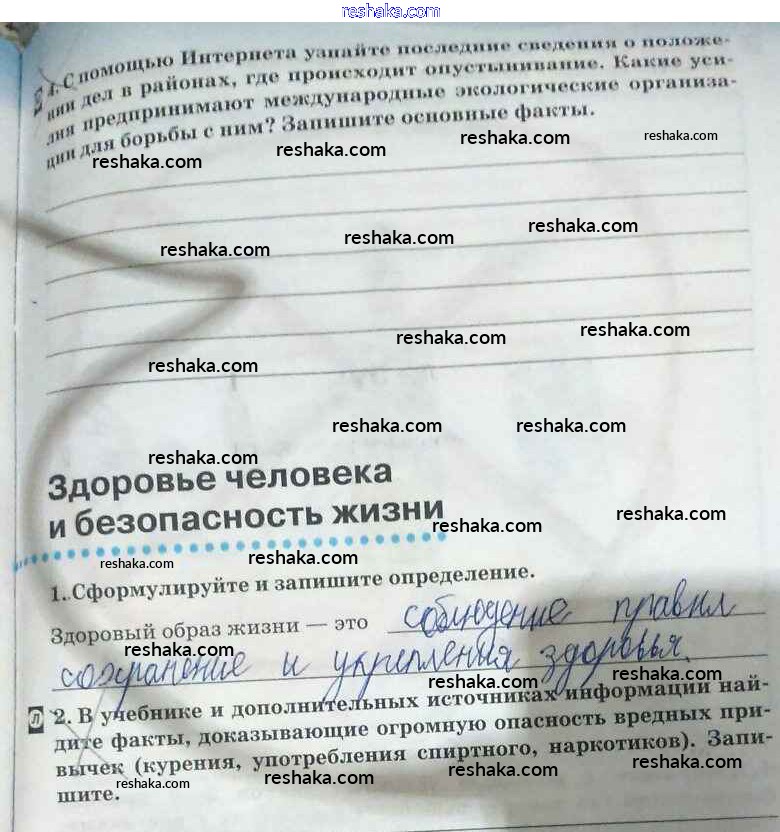 reshaka.com
4. С помощью Интернета узнайте последние сведения о положе-
нии дел в районах, где происходит опустынивание. Какие уси-
лия предпринимают международные экологические организа-
ции для борьбы с ним? Запишите основные факты.
reshaka.com reshaka.com reshaka.com
reshaka.com reshaka.com reshaka.com
reshaka.com reshaka.com reshaka.com
reshaka.com reshaka.com
reshaka.com
Здоровье человека
и безопасность жизни
reshaka.com reshaka.com
reshaka.com reshaka.com
1. Сформулируйте и запишите определение.
Здоровый образ жизни — это соблюдение правил
reshaka.com
сохранение и укрепления здоровья.
reshaka.com reshaka.com
Л 2. В учебнике и дополнительных источниках информации най-
дите факты, доказывающие огромную опасность вредных при-
вычек (курения, употребления спиртного, наркотиков). Запи-
шите.
reshaka.com reshaka.com reshaka.com reshaka.com